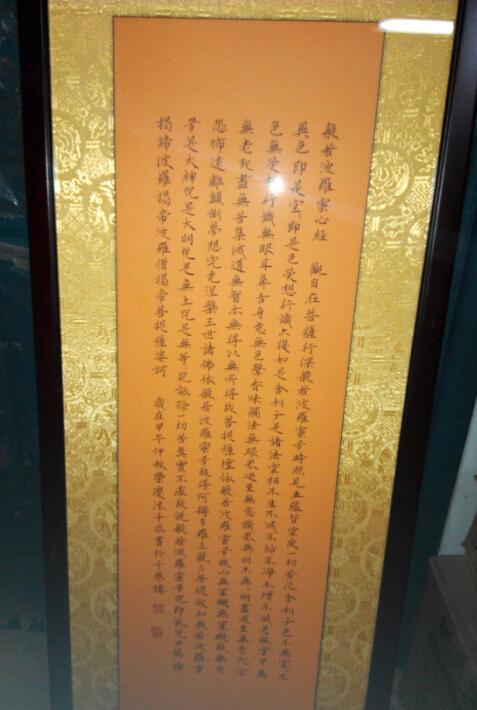 般若波羅蜜心經 觀自在菩薩行深般若波羅蜜多時照見五蘊皆空度一切苦厄舍利子色不異空々不
異色々即是空々即是色受想行識亦復如是舍利子是諸法空相不生不滅不垢不淨不增不減是故空中無
色無受想行識無眼耳鼻舌身意無色聲香味觸法無眼界乃至無意識界無無明亦無無明盡乃至無老死亦
無老死盡無苦集滅道無智亦無得以無所得故菩提薩埵依般若波羅蜜多故心無罣礙無罣礙故無有
恐怖遠離顛倒夢想究竟涅槃三世諸佛依般若波羅蜜多故得阿耨多羅三藐三菩提故知般若波羅蜜
多是大神咒是大明咒是無上咒是無等々咒能除一切苦真實不虛故說般若波羅蜜多咒即說咒曰揭諦
揭諦波羅揭帝波羅僧揭帝菩提薩婆訶 歲在甲午仲秋榮慶沐手恭書於千慈樓